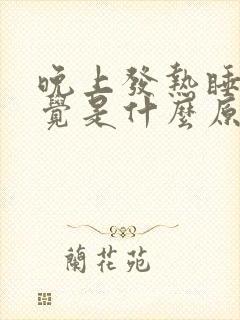 晚上發熱睡
覺是什麼原
蘭花苑